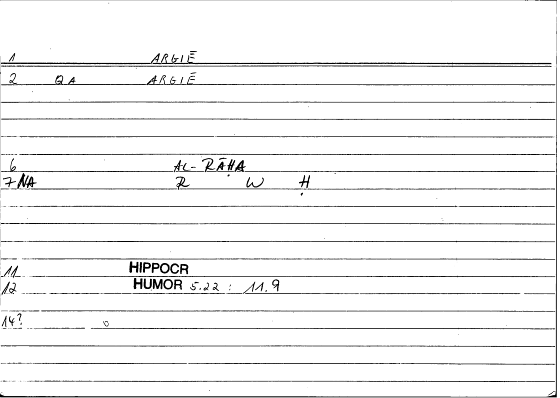 1 ARGIĒ
2 QA ARGIĒ
6 AL-RĀḤA
7 NA R W Ḥ
11 HIPPOCR
12 HUMOR 5.22 : 11,9
14? o